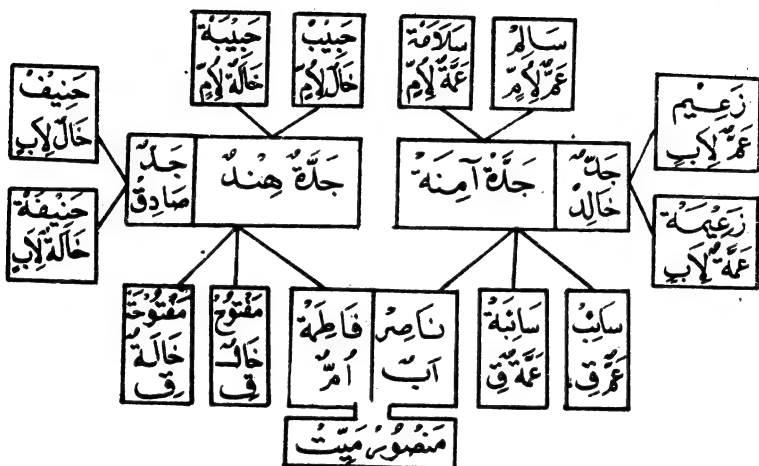 سَالِمٌ
عَمٌّ لِأُمٍّ
سَلَامَةٌ
عَمَّةٌ لِأُمٍّ
حَبِيْبٌ
خَالٌ لِأُمٍّ
حَبِيْبَةٌ
خَالَةٌ لِأُمٍّ
زَعِيْم
عَمٌّ لِأَبٍ
زَعِيْمَةٌ
عَمَّةٌ لِأَبٍ
جَدٌّ
خَالِدٌ
جَدَّةٌ آمِنَةٌ
جَدَّةٌ هِنْدٌ
جَدٌّ
صَادِقٌ
حَنِيْفٌ
خَالٌ لِأَبٍ
حَنِيْفَةٌ
خَالَةٌ لِأَبٍ
سَائِبٌ
عَمٌّ قِ
سَائِبَةٌ
عَمَّةٌ قِ
نَاصِرٌ
اَبٌ
فَاطِمَةٌ
اُمٌّ
مَفْتُوحٌ
خَالٌ
قِ
مَفْتُوحَةٌ
خَالَةٌ
قِ
مَنْصُوْرٌ مَيِّتٌ